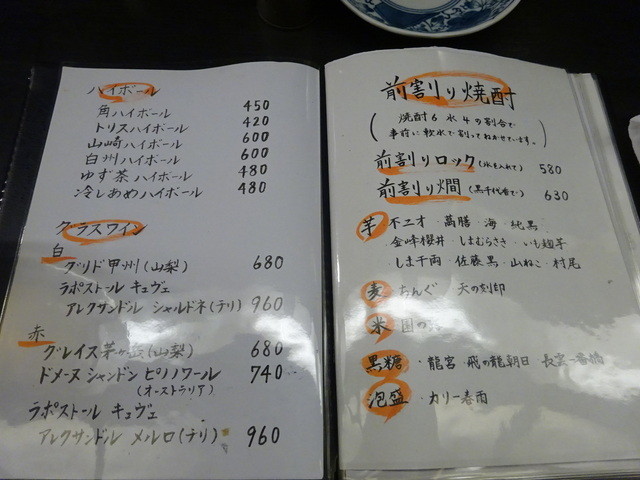 ハイボール
角ハイボール 450
トリスハイボール 420
山崎ハイボール 600
白州ハイボール 600
ゆず茶ハイボール 480
冷しあめハイボール 480
グラスワイン
白
グリド甲州(山梨) 680
ラポストール キュヴェ
アレクサンドル シャルドネ(チリ) 960
赤
グレイス茅ヶ岳(山梨) 680
ドメーヌ シャンドン ピノノワール 740
(オーストラリア)
ラポストール キュヴェ
アレクサンドル メルロ(チリ) 960
前割り焼酎
(焼酎6 水4の割合で
事前に軟水で割ってねかせています。)
前割りロック(氷を入れて) 580
前割り燗(黒千代香で) 630
芋 不二才・萬膳・海・純黒
金峰櫻井・しまむらさき・いも麹芋
しま千両・佐藤黒・山ねこ・村尾
麦 ちんぐ 天の刻印
米 国の
黒糖・龍宮・飛の龍朝日 長雲一番橋
泡盛・カリー春雨